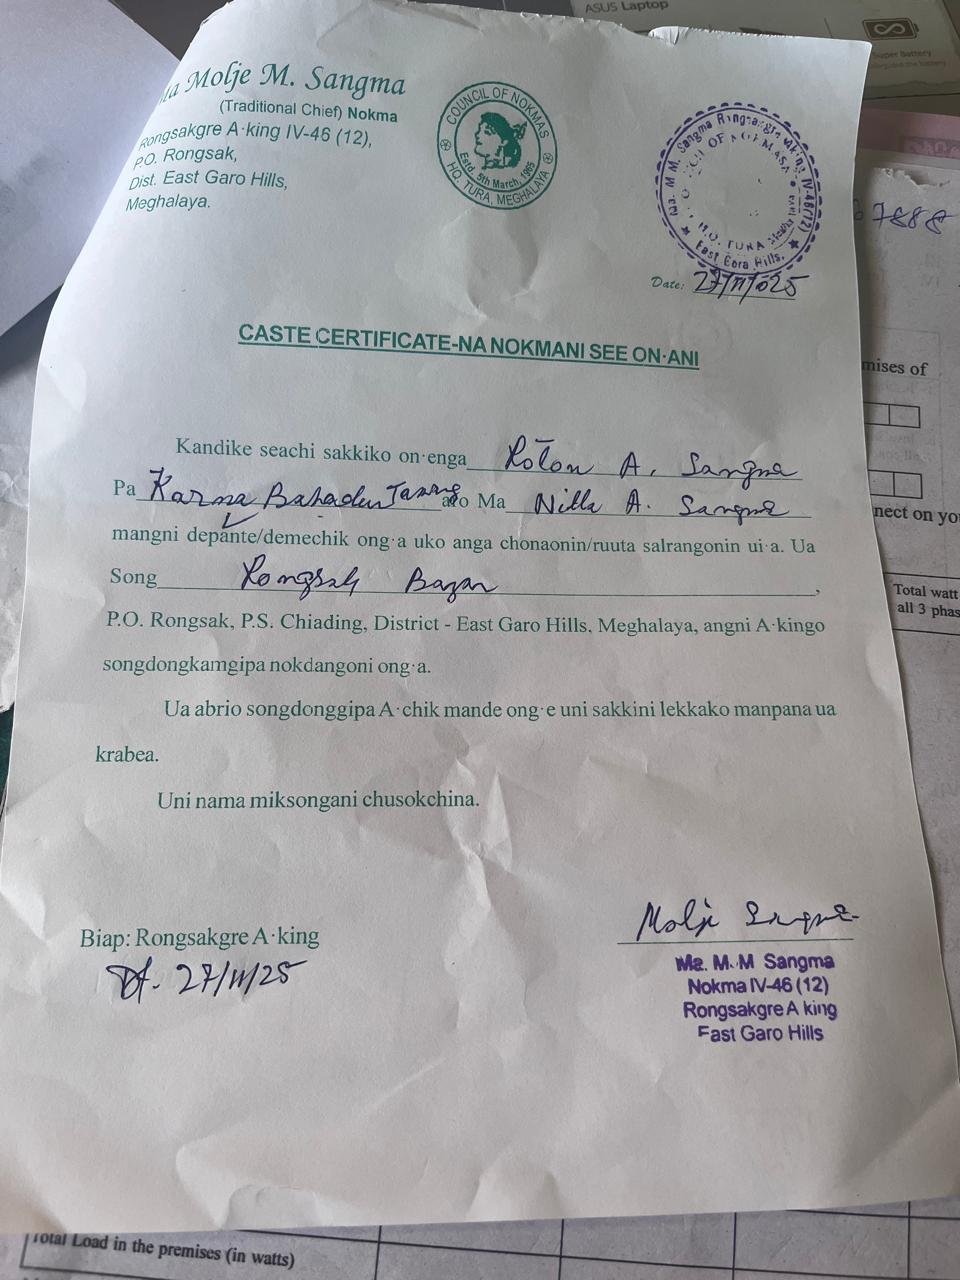 ASUS Laptop
Super Battery
Ma Molje M. Sangma
(Traditional Chief) Nokma
Rongsakgre A·king IV-46 (12),
P.O. Rongsak,
Dist. East Garo Hills,
Meghalaya.
COUNCIL OF NOKMAS
Estd. 5th March, 1995
HQ. TURA, MEGHALAYA
IV-46(12)
H.O. TURA
East Gora Hills.
7888
Date: 27/11/025
CASTE CERTIFICATE-NA NOKMANI SEE ON·ANI
Kandike seachi sakkiko on·enga Roton A. Sangma
Pa Karma Bahadur Tamang aro Ma Nilla A. Sangma
mangni depante/demechik ong·a uko anga chonaonin/ruuta salrangonin ui·a. Ua
Song Rongsak Bazar,
P.O. Rongsak, P.S. Chiading, District - East Garo Hills, Meghalaya, angni A·kingo
songdongkamgipa nokdangoni ong·a.
Ua abrio songdonggipa A·chik mande ong·e uni sakkini lekkako manpana ua
krabea.
Uni nama miksongani chusokchina.
Biap: Rongsakgre A·king
Dt. 27/11/25
Molje Sangma
Ma. M. M Sangma
Nokma IV-46 (12)
Rongsakgre A king
East Garo Hills
mises of
nect on yo
Total watt
all 3 phas
Total Load in the premises (in watts)